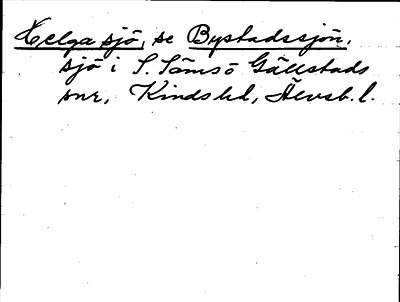 Helga sjö, se Bystadssjön,
sjö i S. Sämsö Gällstads
snr, Kinds hd, Älvsb. l.